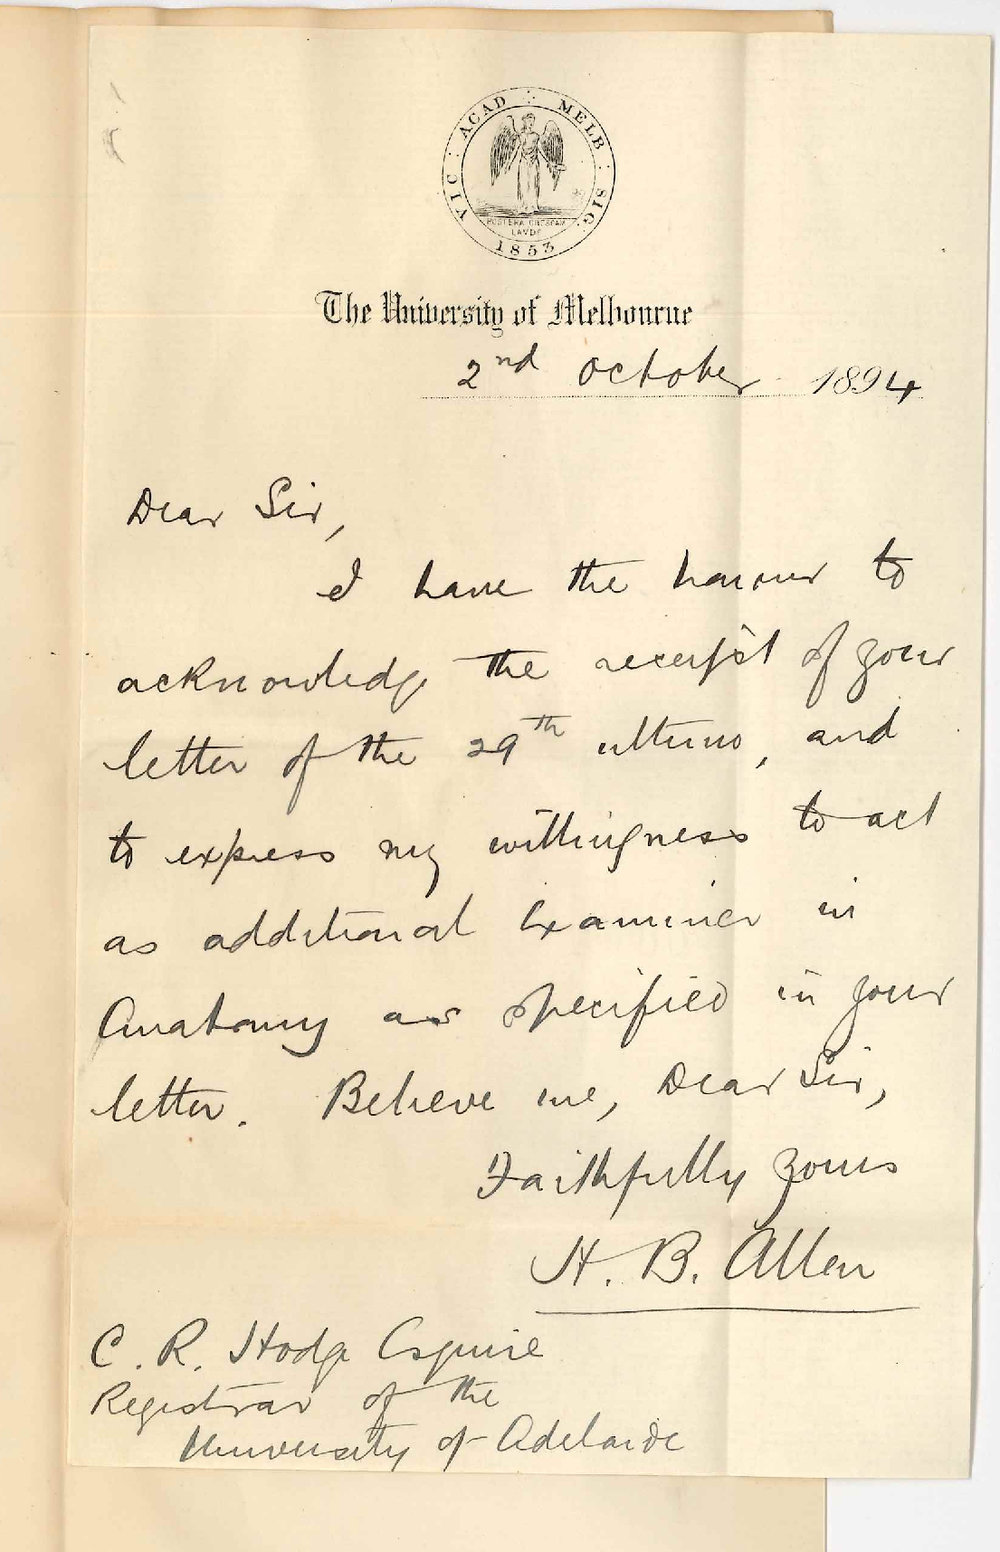 VIC : ACAD : MELB : SIG :
POSTERA CRESCAM
LAVDE
1853
The University of Melbourne
2nd October 1894
Dear Sir,
I have the honour to
acknowledge the receipt of your
letter of the 29th ultimo, and
to express my willingness to act
as additional Examiner in
Anatomy as specified in your
letter. Believe me, Dear Sir,
Faithfully yours
H. B. Allen
C. R. Hodge Esquire
Registrar of the
University of Adelaide